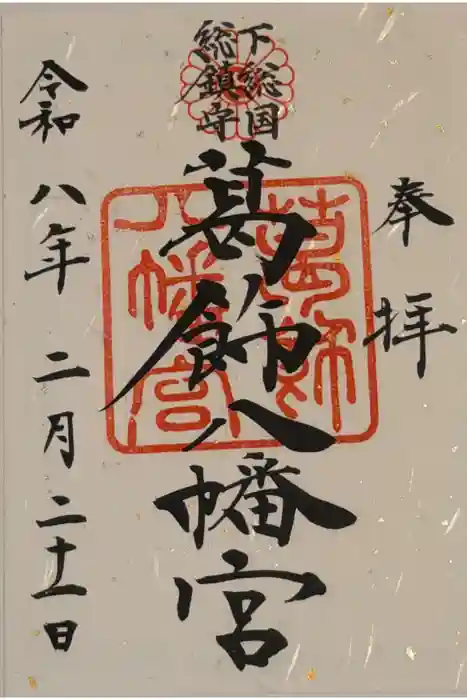 奉拝
下総国
総鎮守
葛飾八幡宮
葛飾
八幡宮
令和八年二月二十一日